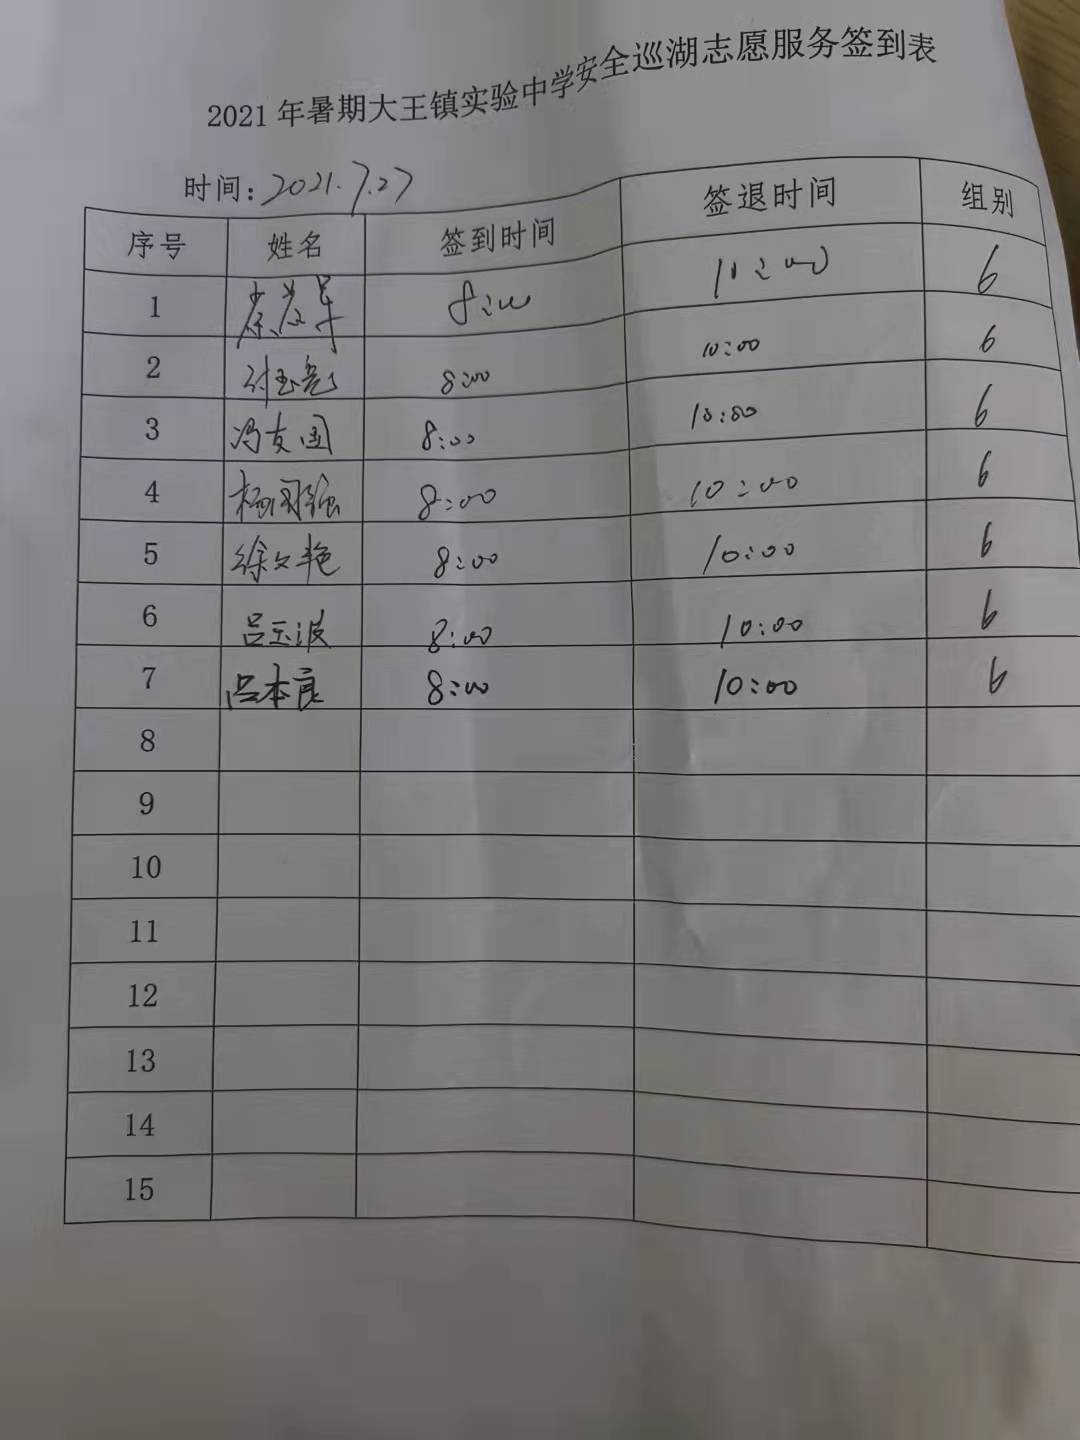 2021年暑期大王镇实验中学安全巡湖志愿服务签到表
时间:2021.7.27
序号 姓名 签到时间 签退时间 组别
1 8:00 10:00 6
2 8:00 10:00 6
3 冯友国 8:00 10:00 6
4 杨国强 8:00 10:00 6
5 徐文艳 8:00 10:00 6
6 吕玉波 8:00 10:00 6
7 吕本良 8:00 10:00 6
8
9
10
11
12
13
14
15